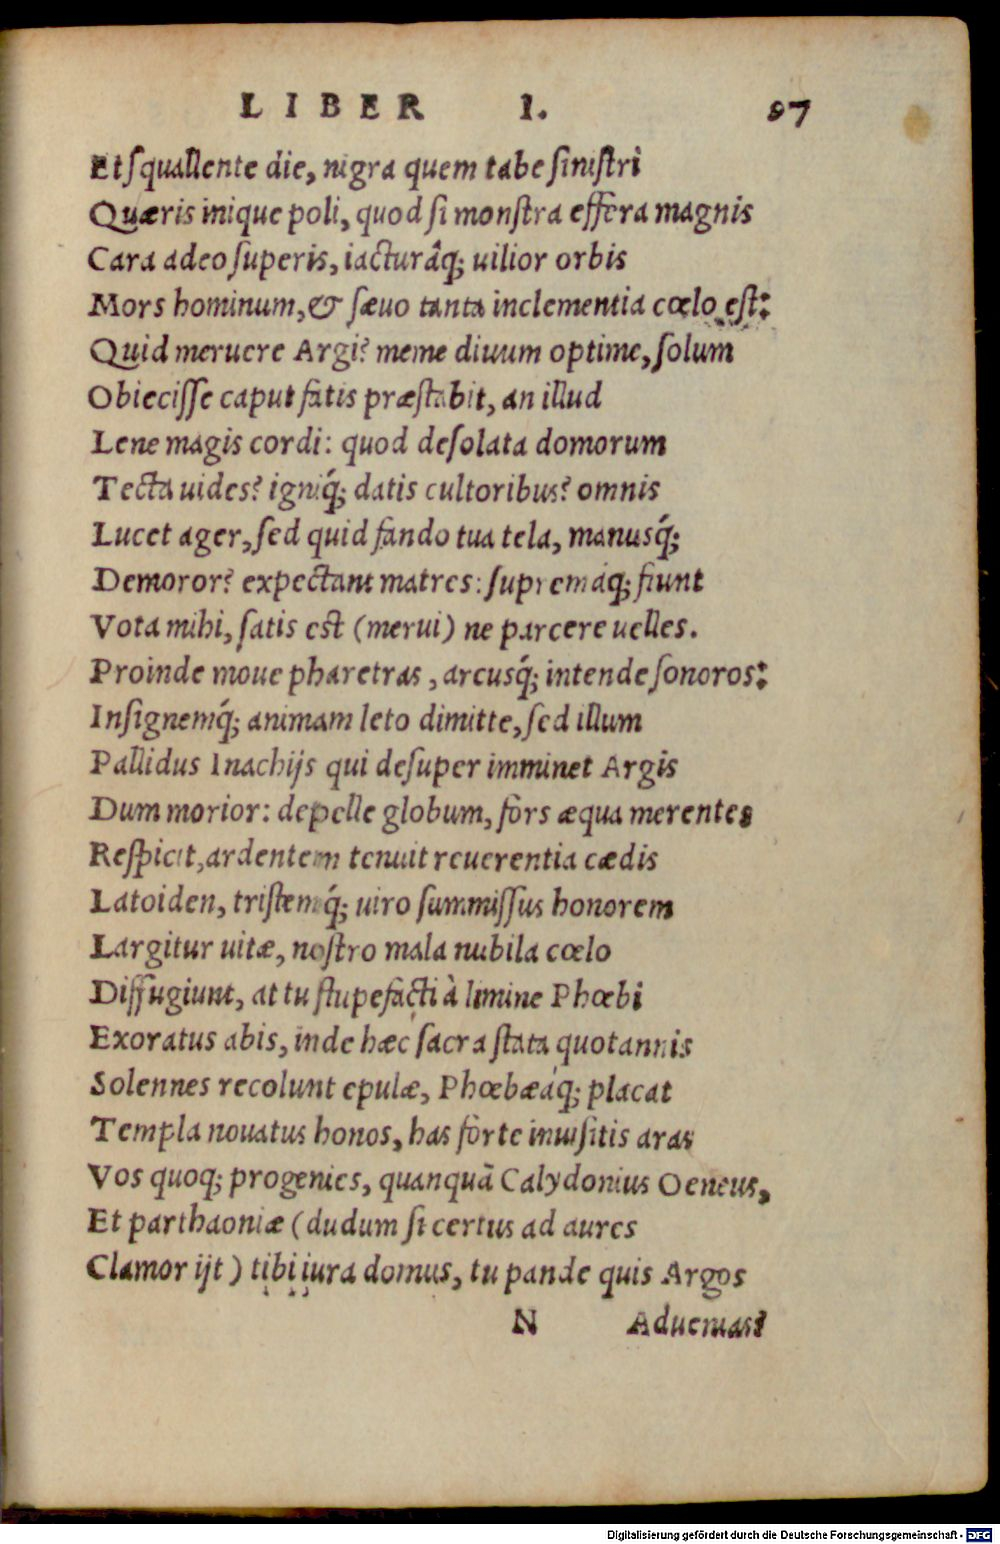 LIBER I. 97
Et squallente die, nigra quem tabe sinistri
Quæris inique poli, quod si monstra effera magnis
Cara adeo superis, iacturáq; uilior orbis
Mors hominum, & sæuo tanta inclementia cœlo est:
Quid meruere Argi? meme diuum optime, solum
Obiecisse caput fatis præstabit, an illud
Lene magis cordi: quod desolata domorum
Tecta uides? igniq́; datis cultoribus? omnis
Lucet ager, sed quid fando tua tela, manusq́;
Demoror? expectant matres: supremáq; fiunt
Vota mihi, satis est (merui) ne parcere uelles.
Proinde moue pharetras, arcusq́; intende sonoros:
Insignemq́; animam leto dimitte, sed illum
Pallidus Inachijs qui desuper imminet Argis
Dum morior: depelle globum, fors æqua merentes
Respicit, ardentem tenuit reuerentia cædis
Latoiden, tristemq́; uiro summissus honorem
Largitur uitæ, nostro mala nubila cœlo
Diffugiunt, at tu stupefacti à limine Phœbi
Exoratus abis, inde hæc sacra stata quotannis
Solennes recolunt epulæ, Phœbæáq; placat
Templa nouatus honos, has forte inuisitis aras
Vos quoq; progenies, quanquā Calydonius Oeneus,
Et parthaoniæ (dudum si certus ad aures
Clamor ijt) tibi iura domus, tu pande quis Argos
N Aduenias?
Digitalisierung gefördert durch die Deutsche Forschungsgemeinschaft - DFG